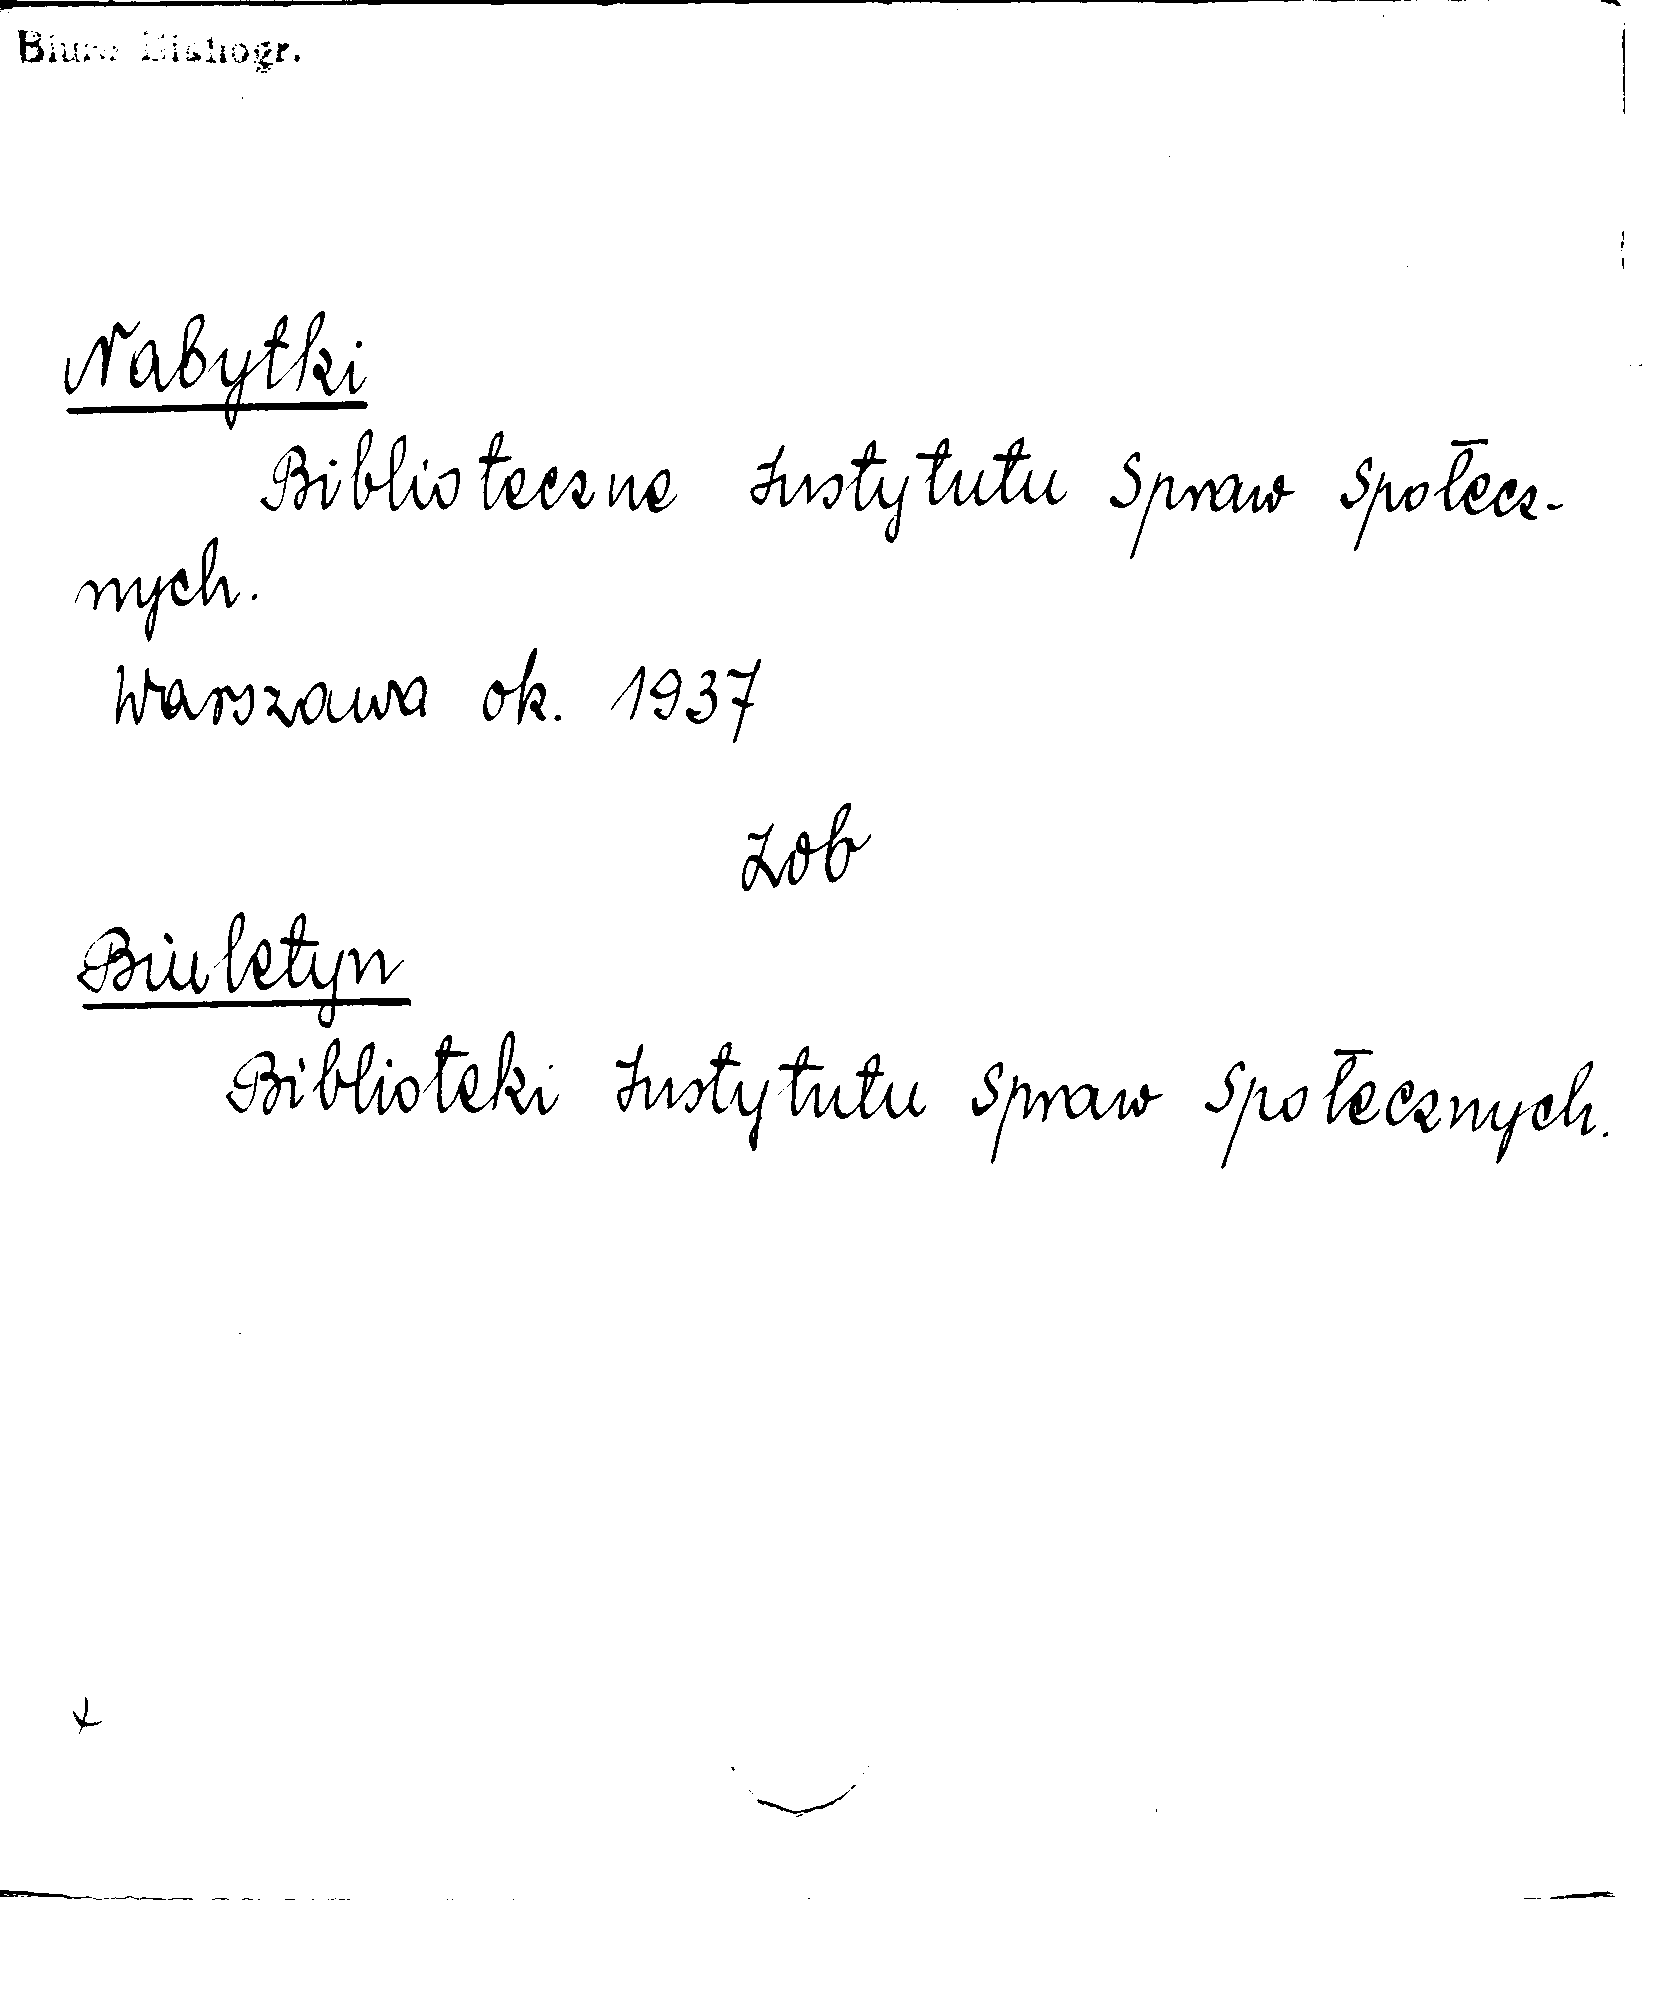 Biuro Bibliogr.
Nabytki
Biblioteczne Instytutu Spraw Społecz-
nych.
Warszawa ok. 1937
zob
Biuletyn
Biblioteki Instytutu Spraw Społecznych.